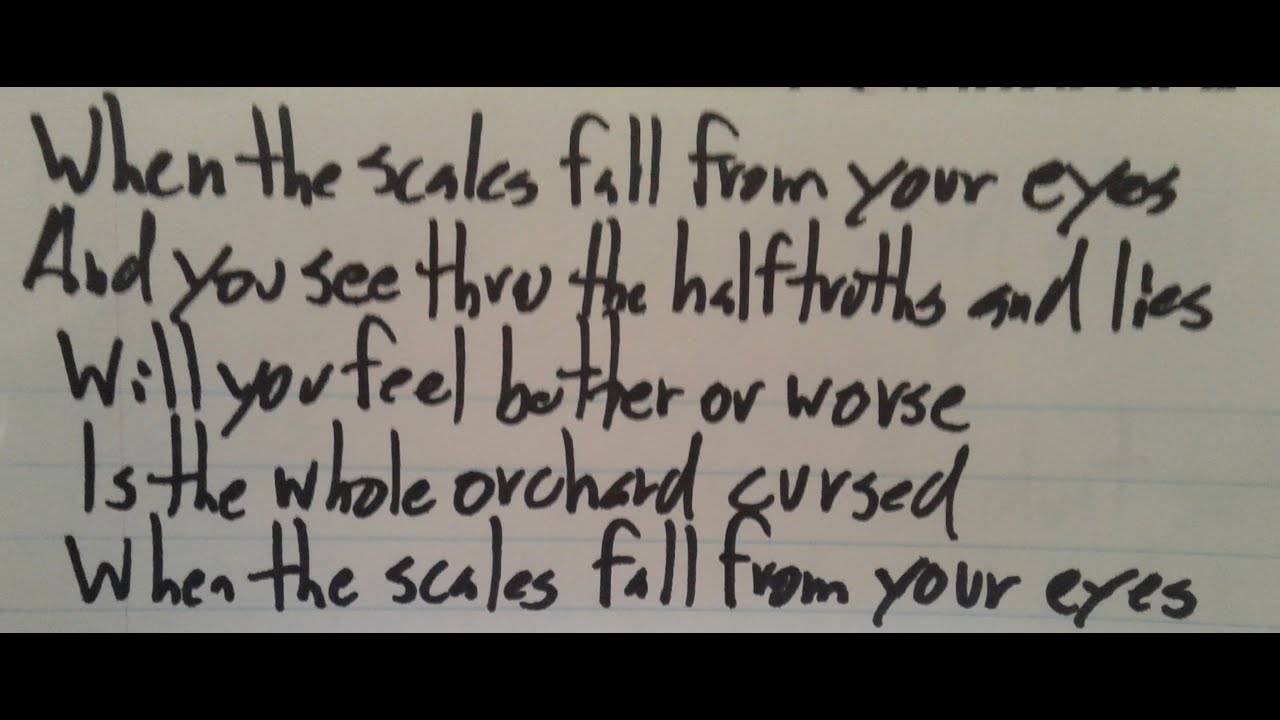 When the scales fall from your eyes
And you see thru the half truths and lies
Will you feel better or worse
Is the whole orchard cursed
When the scales fall from your eyes